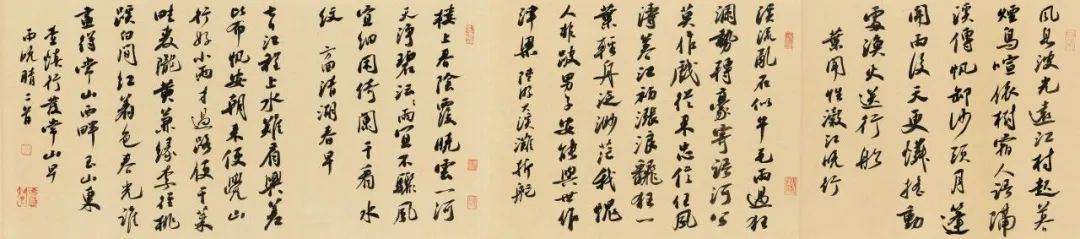 風息波光遠江村起暮
煙鳥喧依樹宿人語隔
溪傳帆卸沙頭月蓬
開雨後天更憐搖動
處漁火送行船
葉開性澂江晚行
溪流亂石似牛毛雨過狂
瀾勢轉豪寄語河公
莫作戲從來忠信任風
濤春江初漲浪飄狂一
葉輕舟泛渺茫我愧
人非跛男子安能與世作
津梁 溪灘折舵
樓上春陰霞曉雲一河
天淨碧江雨宜不驟風
宜細閒倚闌干看水
紋 湖春早
去江程上水難肩輿差
以布帆安朝來便覺山
行好小雨才過路便干菜
畦麥隴黃兼綠李徑桃
蹊白間紅 色春光誰
畫得常山西畔玉山東
查慎行發常山早
雨晚晴二首